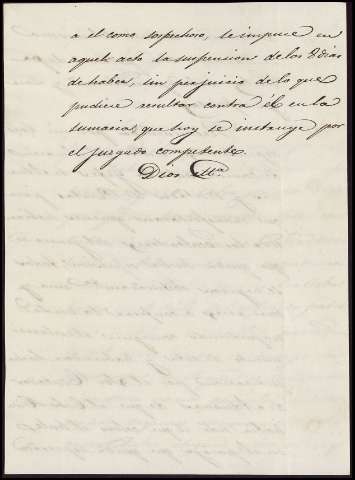 a el como sospechoso, se impuse en
aquel acto la suspension de los 8 dias
de haber, sin perjuicio de lo que
pudiere resultar contra él en la
sumaria, que hoy se instruye por
el juzgado competente.
Dios &a.